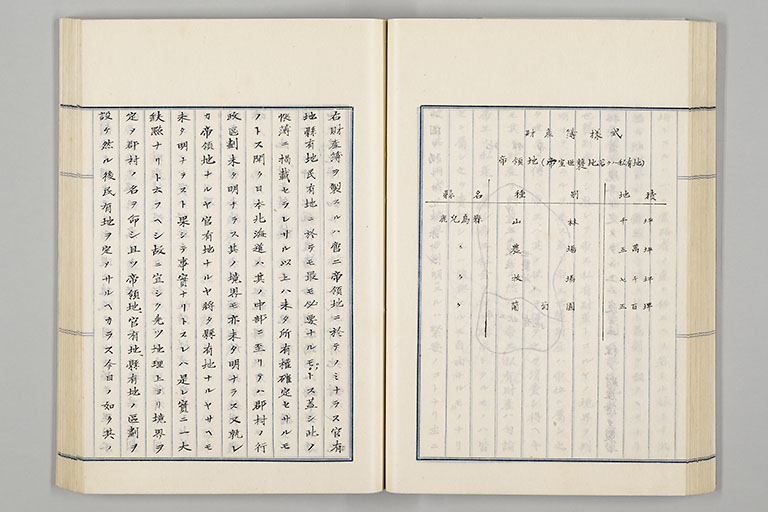 財産簿様式
帝領地(帝室世襲地若クハ私有地)
縣名 種別 地積
鹿兒島縣 山林 千坪
〃 農場 五萬坪
〃 牧場 七千坪
〃 葡萄園 五百坪
右財産簿ヲ製スルハ啻ニ帝領地ニ於テノミナラス官有
地縣有地民有地ニ於テモ最モ必要ナルモノトス蓋シ此ノ
帳簿ニ揭載セラレサル以上ハ未タ所有權確定セサルモ
ノトス聞ク日本北海道ハ其ノ中部ニ至リテハ郡村ノ行
政區劃未タ明ナラス其ノ境界モ亦未タ明ナラス又孰レ
カ帝領地ナルヤ官有地ナルヤ將タ縣有地ナルヤサヘモ
未タ明ナラスト果シテ事實ナリトスレハ是レ實ニ一大
缺點ナリト云フヘシ故ニ宜シク先ツ地理上ヨリ境界ヲ
定メ郡村ノ名ヲ命シ且ツ帝領地、官有地、縣有地ノ區劃ヲ
設ケ然ル後民有地ヲ定メサルヘカラス今日ノ如ク其ノ